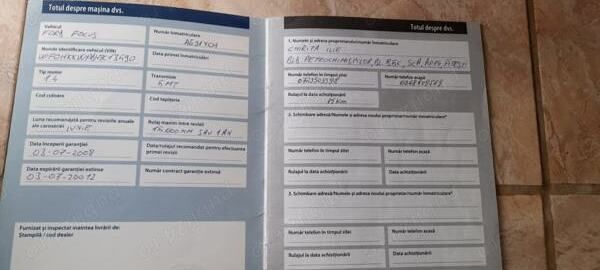 Totul despre mașina dvs.
Vehicul
FORD FOCUS
Număr înmatriculare
AG31YCH
Număr identificare vehicul (VIN)
Data primei înmatriculări
Tip motor
1.4
Transmisie
5MT
Cod culoare
Cod tapițerie
Luna recomandată pentru reviziile anuale ale caroseriei IUNIE
Rulaj maxim între revizii
SAU 1AN
Data începerii garanției
03-07-2008
Data/rulajul recomandat pentru efectuarea primei revizii
Data expirării garanției extinse
03-07-20012
Număr contract garanție extinsă
Furnizat și inspectat înaintea livrării de:
Ștampilă / cod dealer
Totul despre dvs.
1. Numele și adresa proprietarului/număr înmatriculare
CHIRITA ILIE
Număr telefon în timpul zilei
Număr telefon acasă
Rulajul la data achiziționării
15 km
2. Schimbare adresă/Numele și adresa noului proprietar/număr înmatriculare*
Număr telefon în timpul zilei
Număr telefon acasă
Rulajul la data achiziționării
Data achiziționării
3. Schimbare adresă/Numele și adresa noului proprietar/număr înmatriculare*
Număr telefon în timpul zilei
Număr telefon acasă
Rulajul la data achiziționării
Data achiziționării